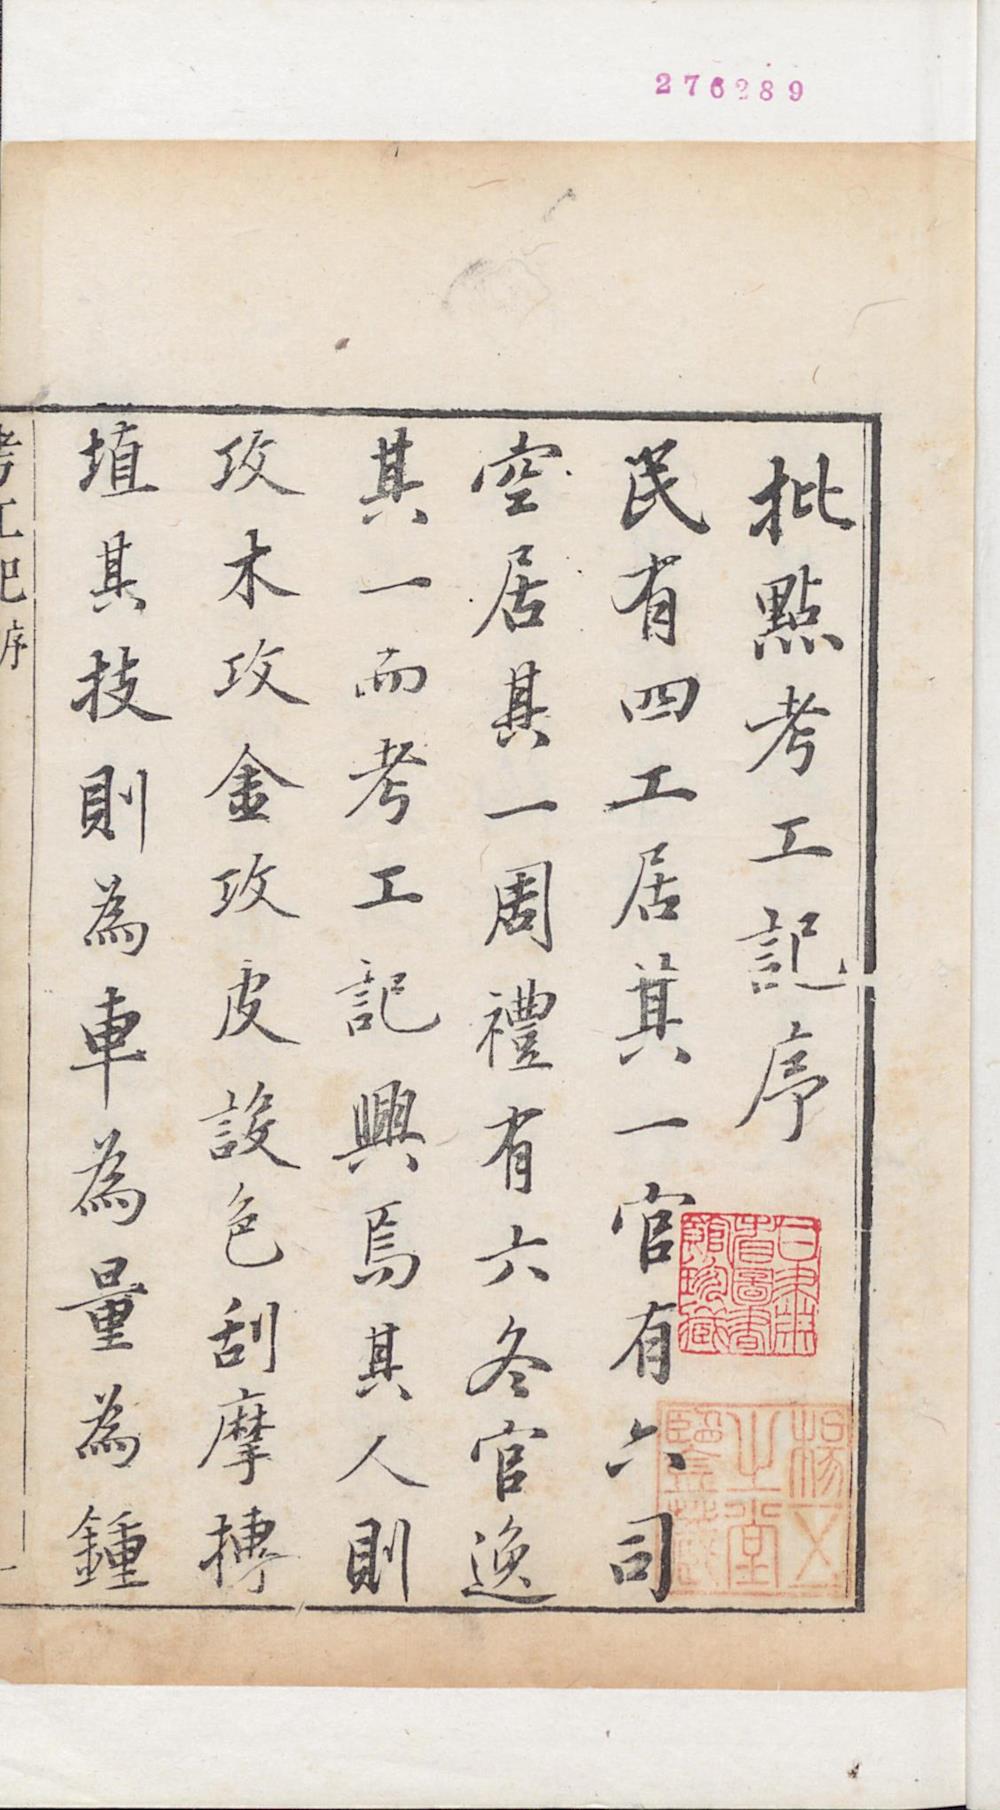 276289
批點考工記序
民有四工居其一官有六司
空居其一周禮有六冬官逸
其一而考工記興焉其人則
攻木攻金攻皮設色刮摩摶
埴其技則為車為量為鍾
考工記序
一
甘肅省圖書館珍藏